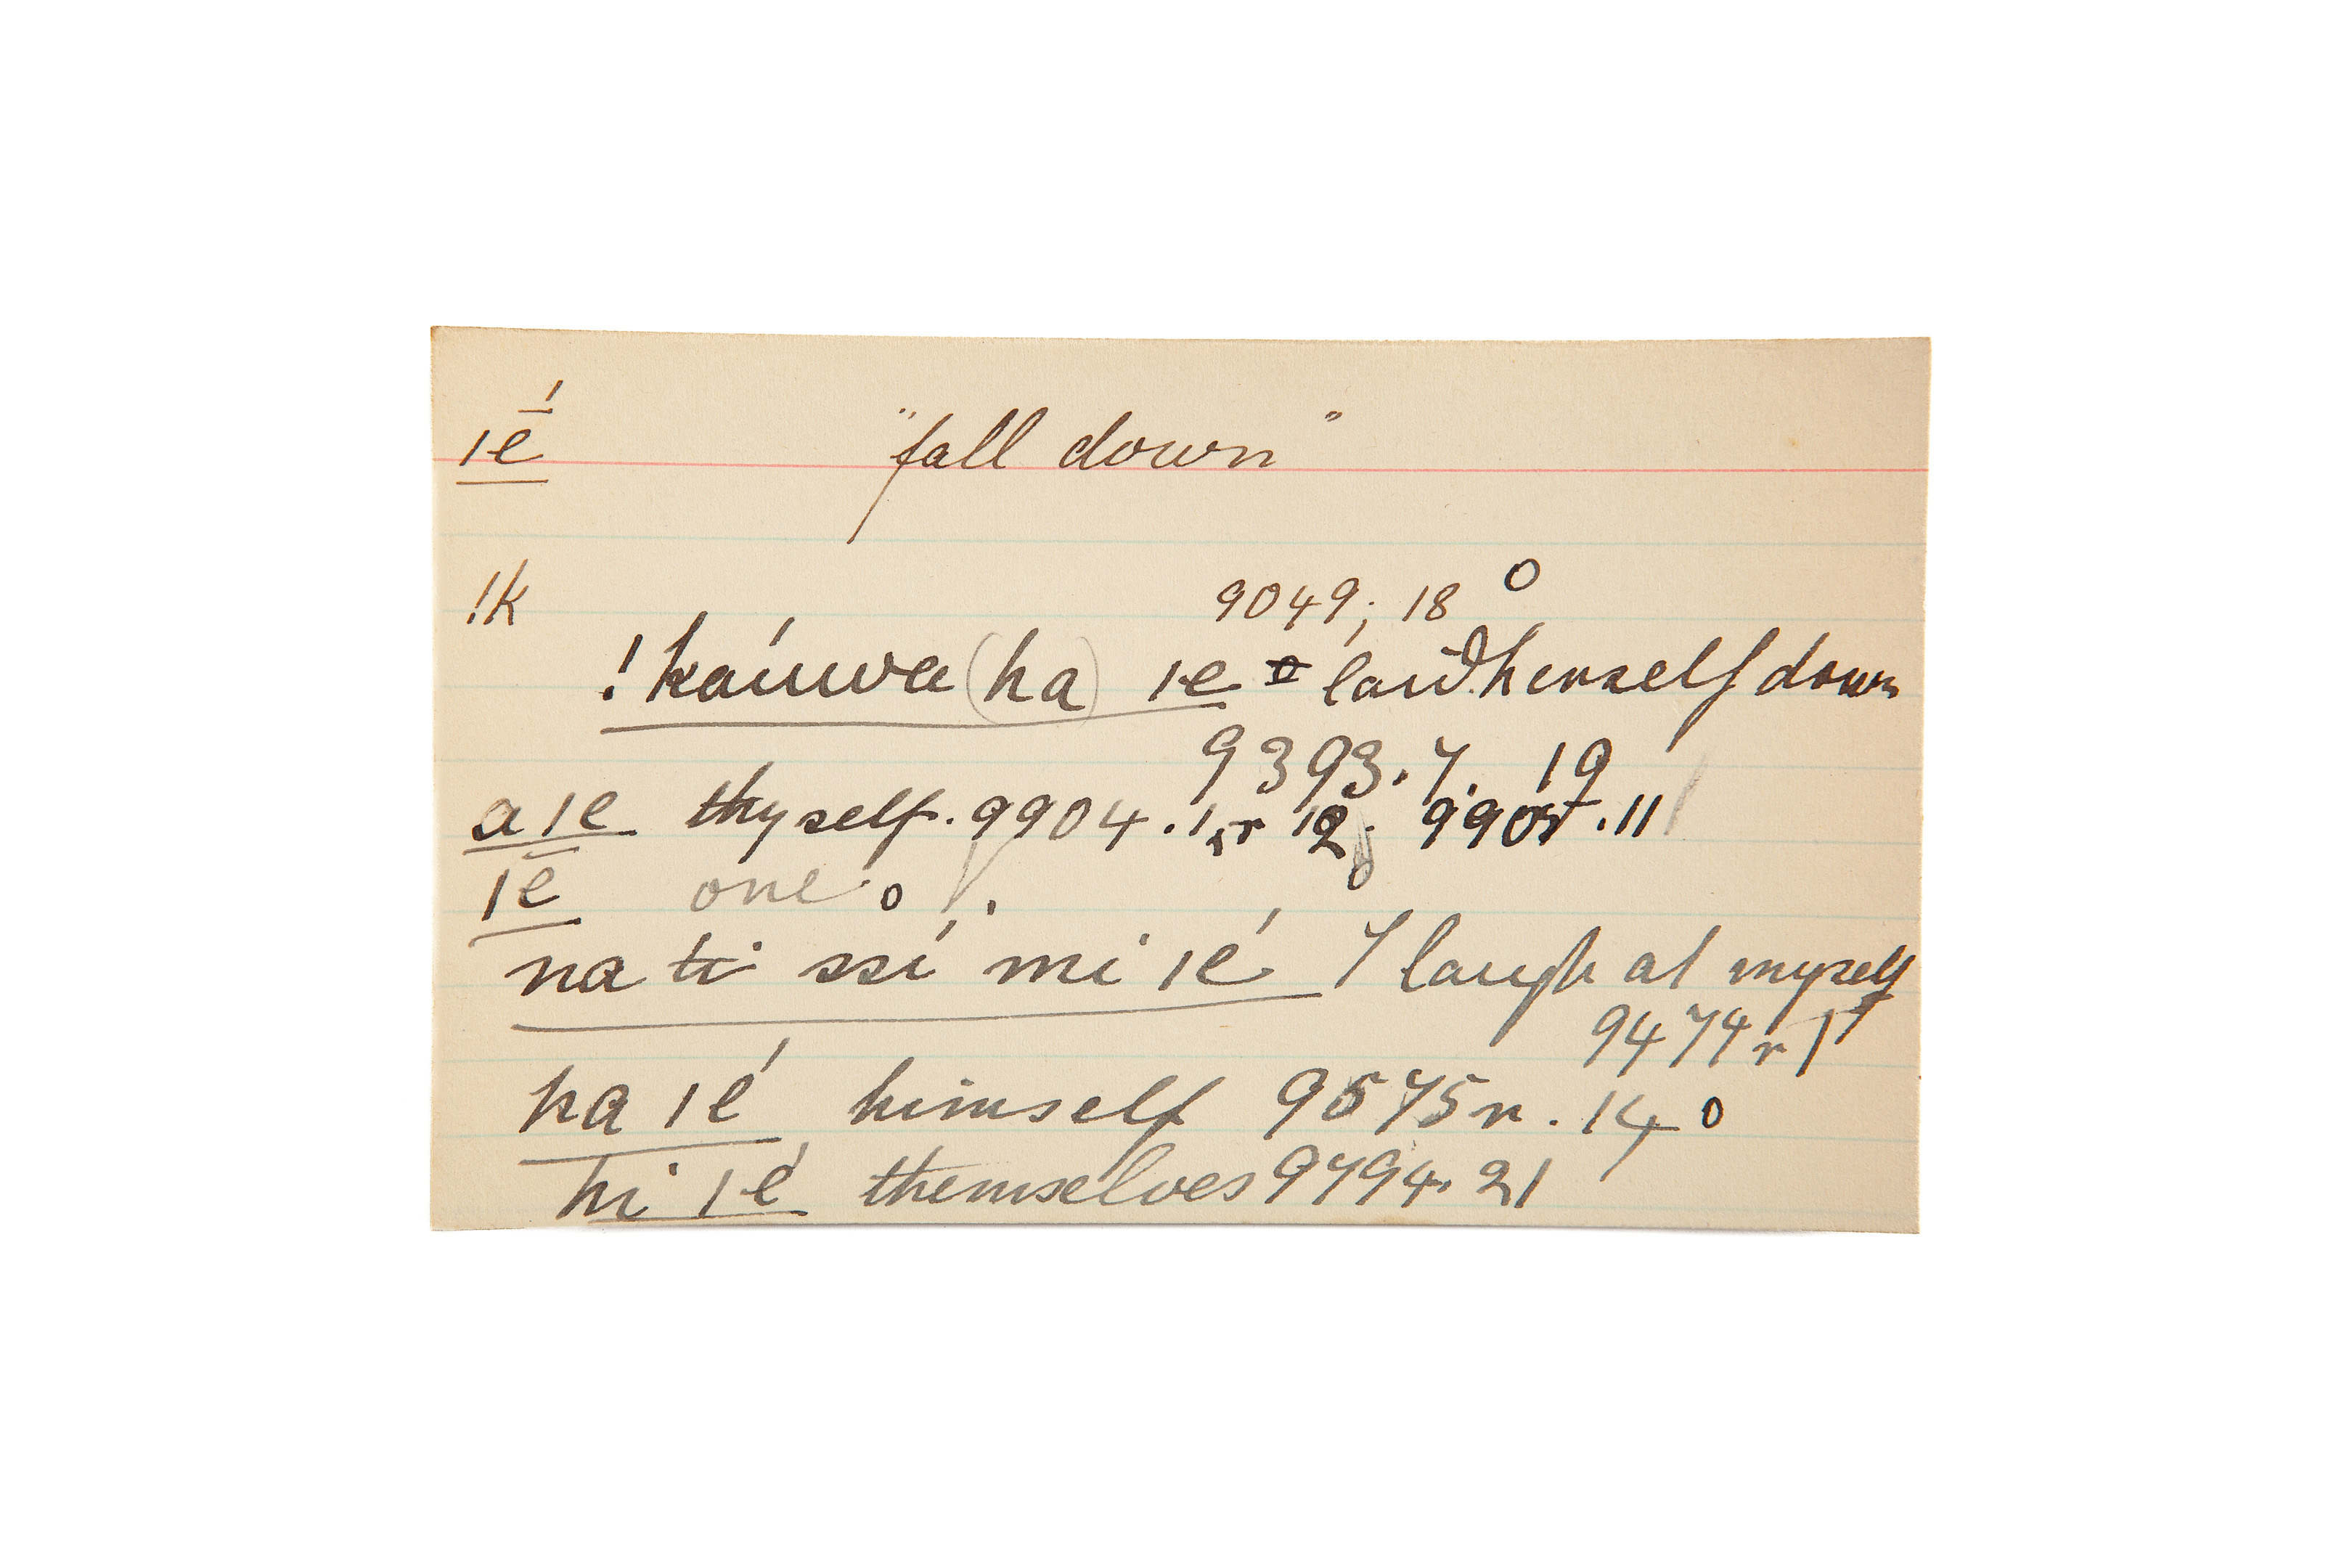 ǀḗ "fall down"
!k 9049; 18 o
!káuwa (ha) ǀe laid herself down
9393.7. 19
a ǀe thyself. 9904.1, r 12. 9905.11
ǀē one o
na ti ssí mi ǀé I laugh at myself
9474 r
ha ǀé himself 9575 r. 14 o
hi ǀé themselves 9794. 21